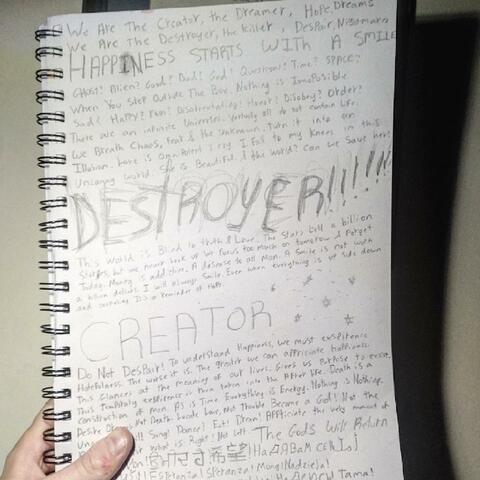 We Are The Creator, the Dreamer, Hope, Dreams
We Are The Destroyer, the Killer, Despair, Nightmares
HAPPINESS STARTS WITH A SMILE
GHOST? Alien? Good? Bad? God? Questions? Time? SPACE?
When You Step Outside The Box, Nothing is Impossible
Sad? Happy? Fun? Disorientating? Honor? Disobey? Order?
There are an infinite Universes. Virtually all do not contain life.
We Breath Chaos, Fear & the Unknown. Turn it into an
Illusion. Love is Omnipotent I cry. I fall to my knees in this
Uncaring World. She is Beautiful, & the world? Can we save her?
DESTROYER!!!!!!
This World is Blind to truth & Love. The Stars tell a billion
Stories, but we never look up. We focus too much on tomorrow & forget
Today. Money is addictive. A disease to all Man. A Smile is not worth
a billion dollars. I will always Smile. Even when everything is up side down
and
It's a reminder of Hope.
CREATOR
Do Not Despair! To understand Happiness, we must experience
Hatefulness. The worse it is. The greater we can appriciate
This Glances at the meaning of our lives. Gives us purpose to exist.
This
experience is
taken into the After life. Death is a
construction of man. As is Time. Everything is Energy. Nothing is Nothing.
Desire
Not Death
Love, Not Trouble Became a God! Not the
Sing! Dance! Eat! Dream! Appriciate the very moment of
what is Right! Not Left. The Gods Will Return
希望
Esperanza! Speranza!